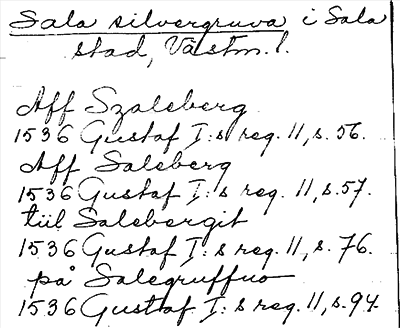 Sala silvergruva i Sala
stad, Västm. l.
Aff Szaleberg
1536 Gustaf I:s reg. 11, s. 56.
Aff Saleberg
1536 Gustaf I:s reg. 11, s. 57.
tiil Salebergit
1536 Gustaf I:s reg. 11, s. 76.
på Salegruffuo
1536 Gustaf I:s reg. 11, s. 94.